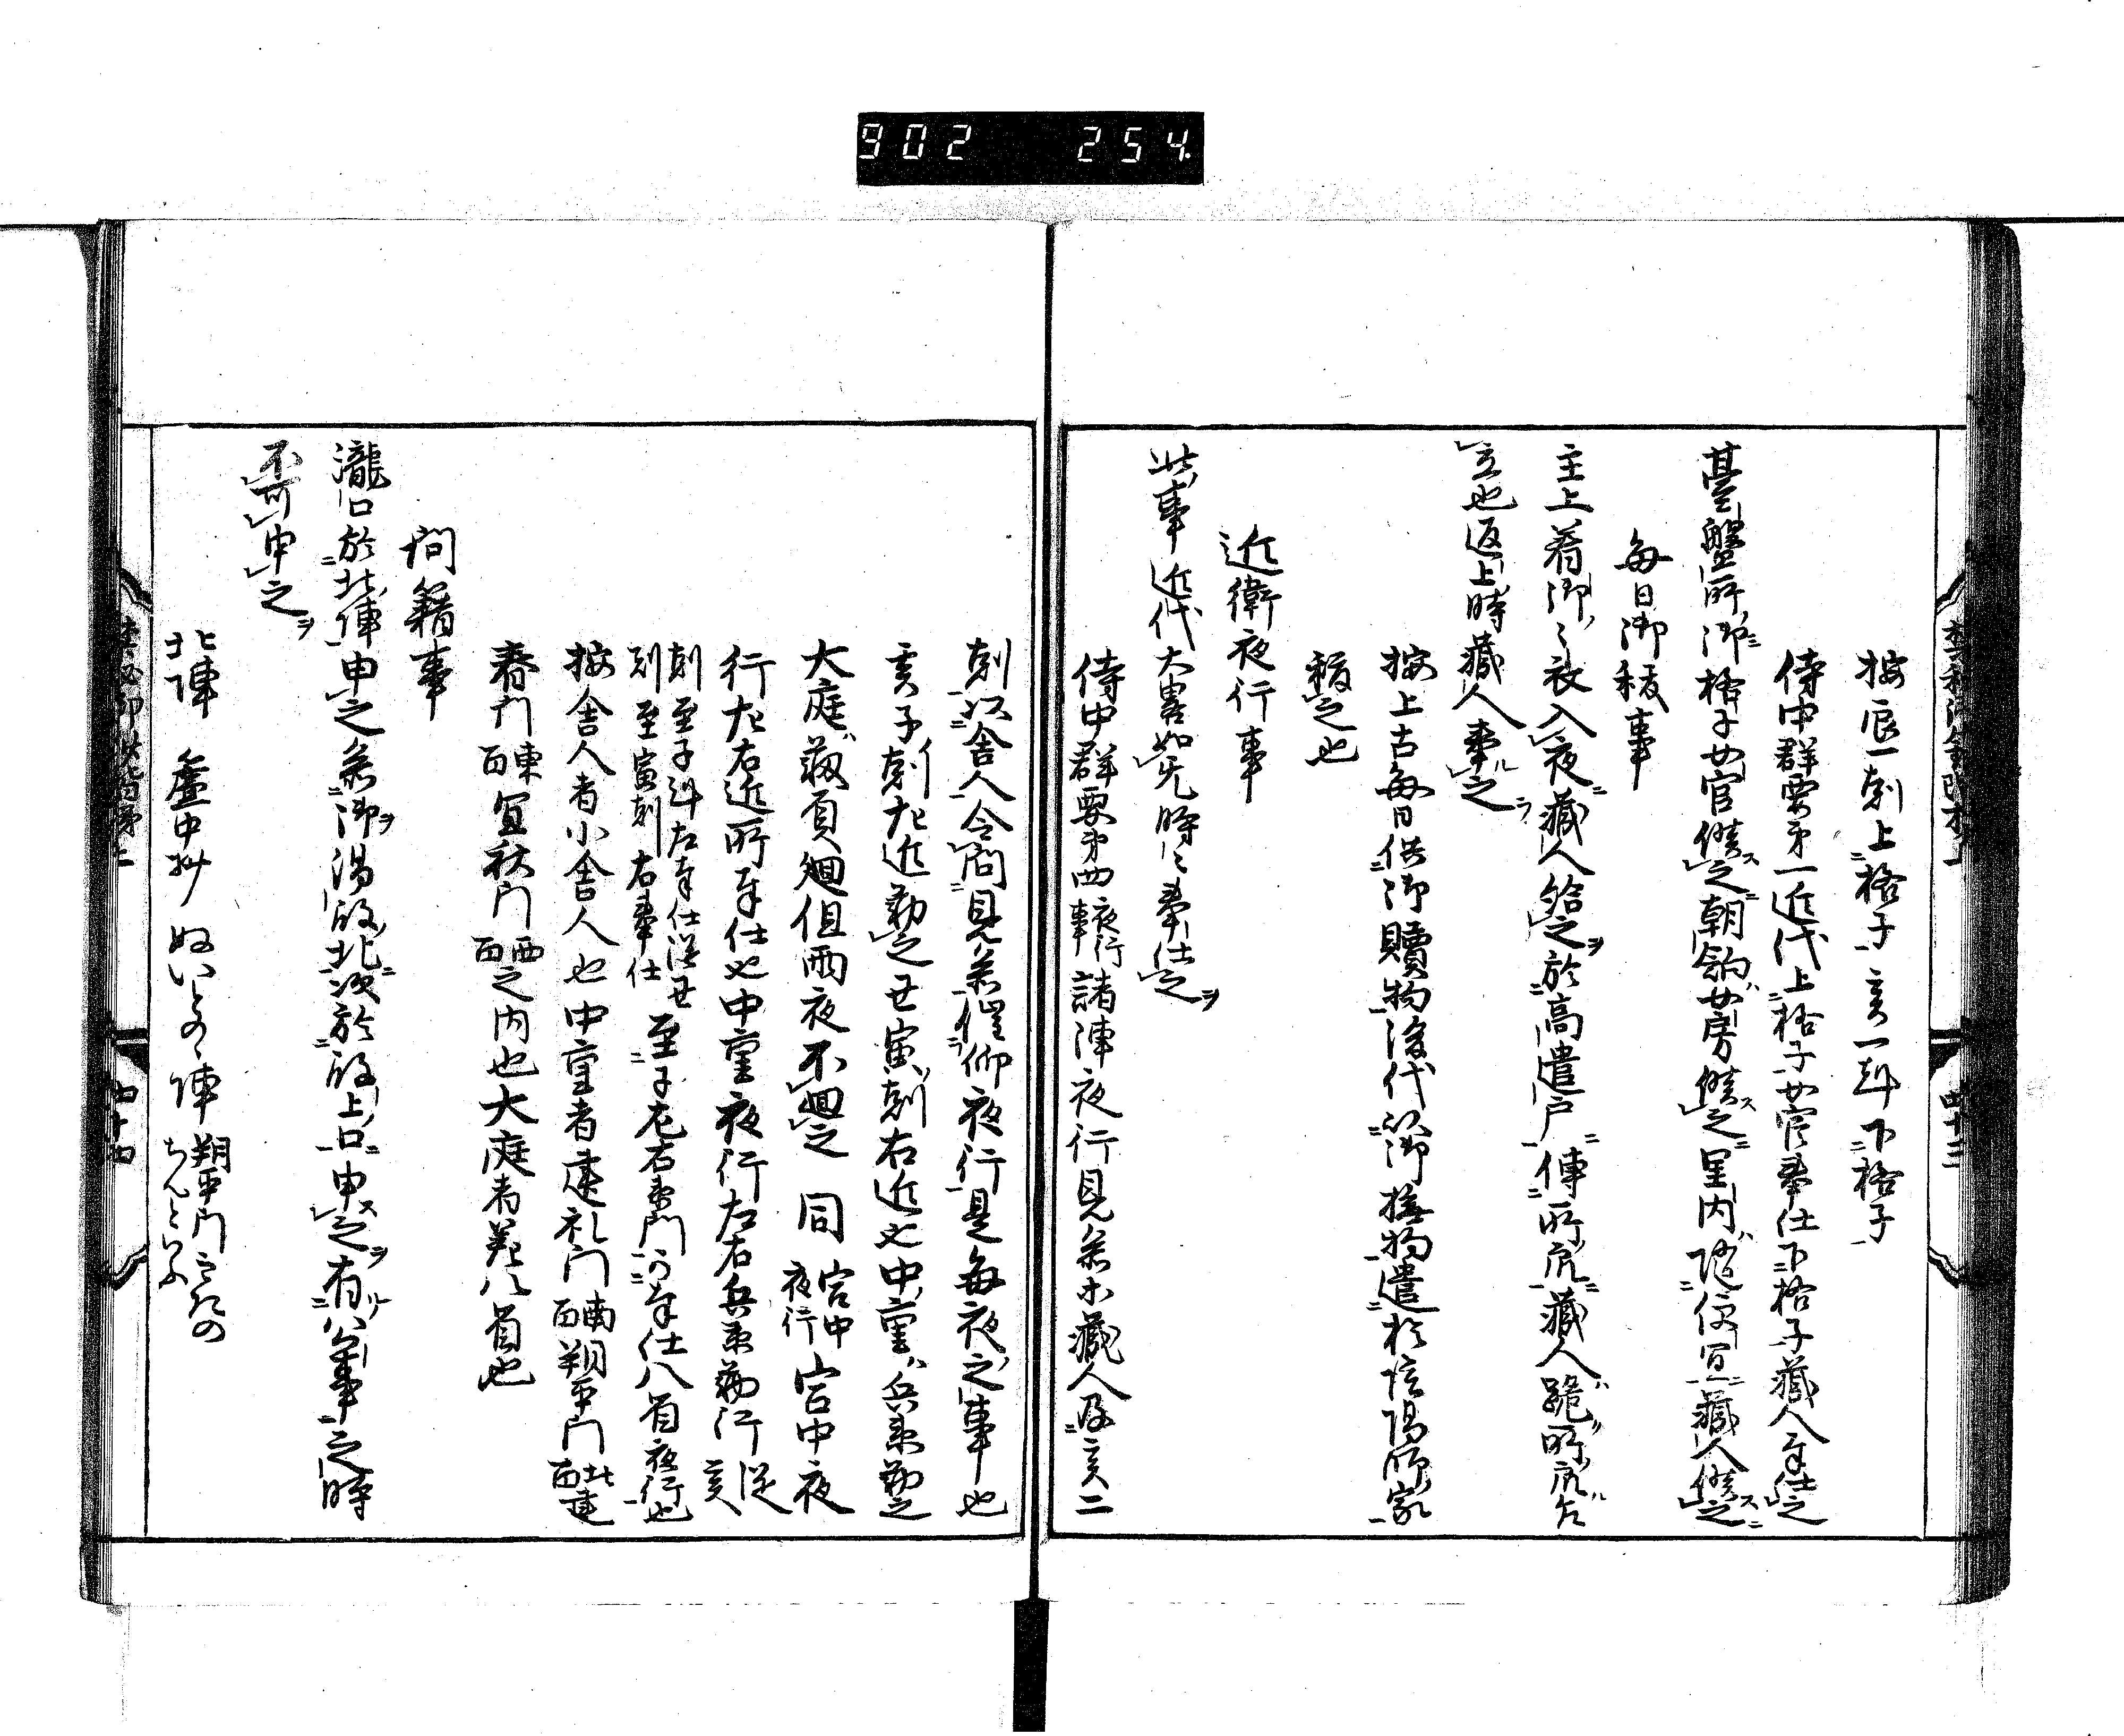 902 254
按辰一剋上格子亥一剋下格子
侍中群要第一近代上格子女官奉仕下格子藏人奉仕之
臺盤所御格子女官候之朝餉女房候之里内隨便宜藏人候之
毎日御祓事
主上着御之衣入夜藏人給之於高遣戸傳所衆藏人跪所衆乍
立也返上時藏人奉之
按上古毎日供御贖物後代以御撫物遣於陰陽師家
祓之也
近衛夜行事
此事近代大畧如先時々奉仕之
侍中群要第四夜行事諸陣夜行見參小藏人及亥二
剋以舍人令問見參催仰夜行是毎夜之事也
亥子剋左近勤之丑寅剋右近也中重兵衛勤之
大庭靱負廻但雨夜不廻之 同宮中夜行宮中夜
行左右近所奉仕也中重夜行左右兵衛勤行從亥
剋至子剋左奉仕從丑剋至寅剋右奉仕至于左右衛門不奉仕八省夜行也
按舍人者小舍人也中重者建礼門南面朔平門北面建
春門東面宜秋門西面之内也大庭者龍尾八省也
問籍事
瀧口於北陣申之無御湯殿北次於殿上口申之有公事之時
不可申之
北陣 簾中抄 ぬいとのゝ陣 朔平門これの
ちんといふ
四十三
四十四